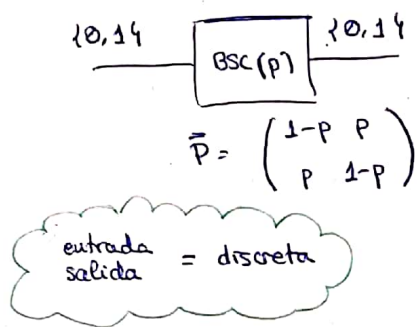 {0,1} {0,1}
BSC(p)
P̄ = (1-p p
p 1-p)
entrada
salida = discreta